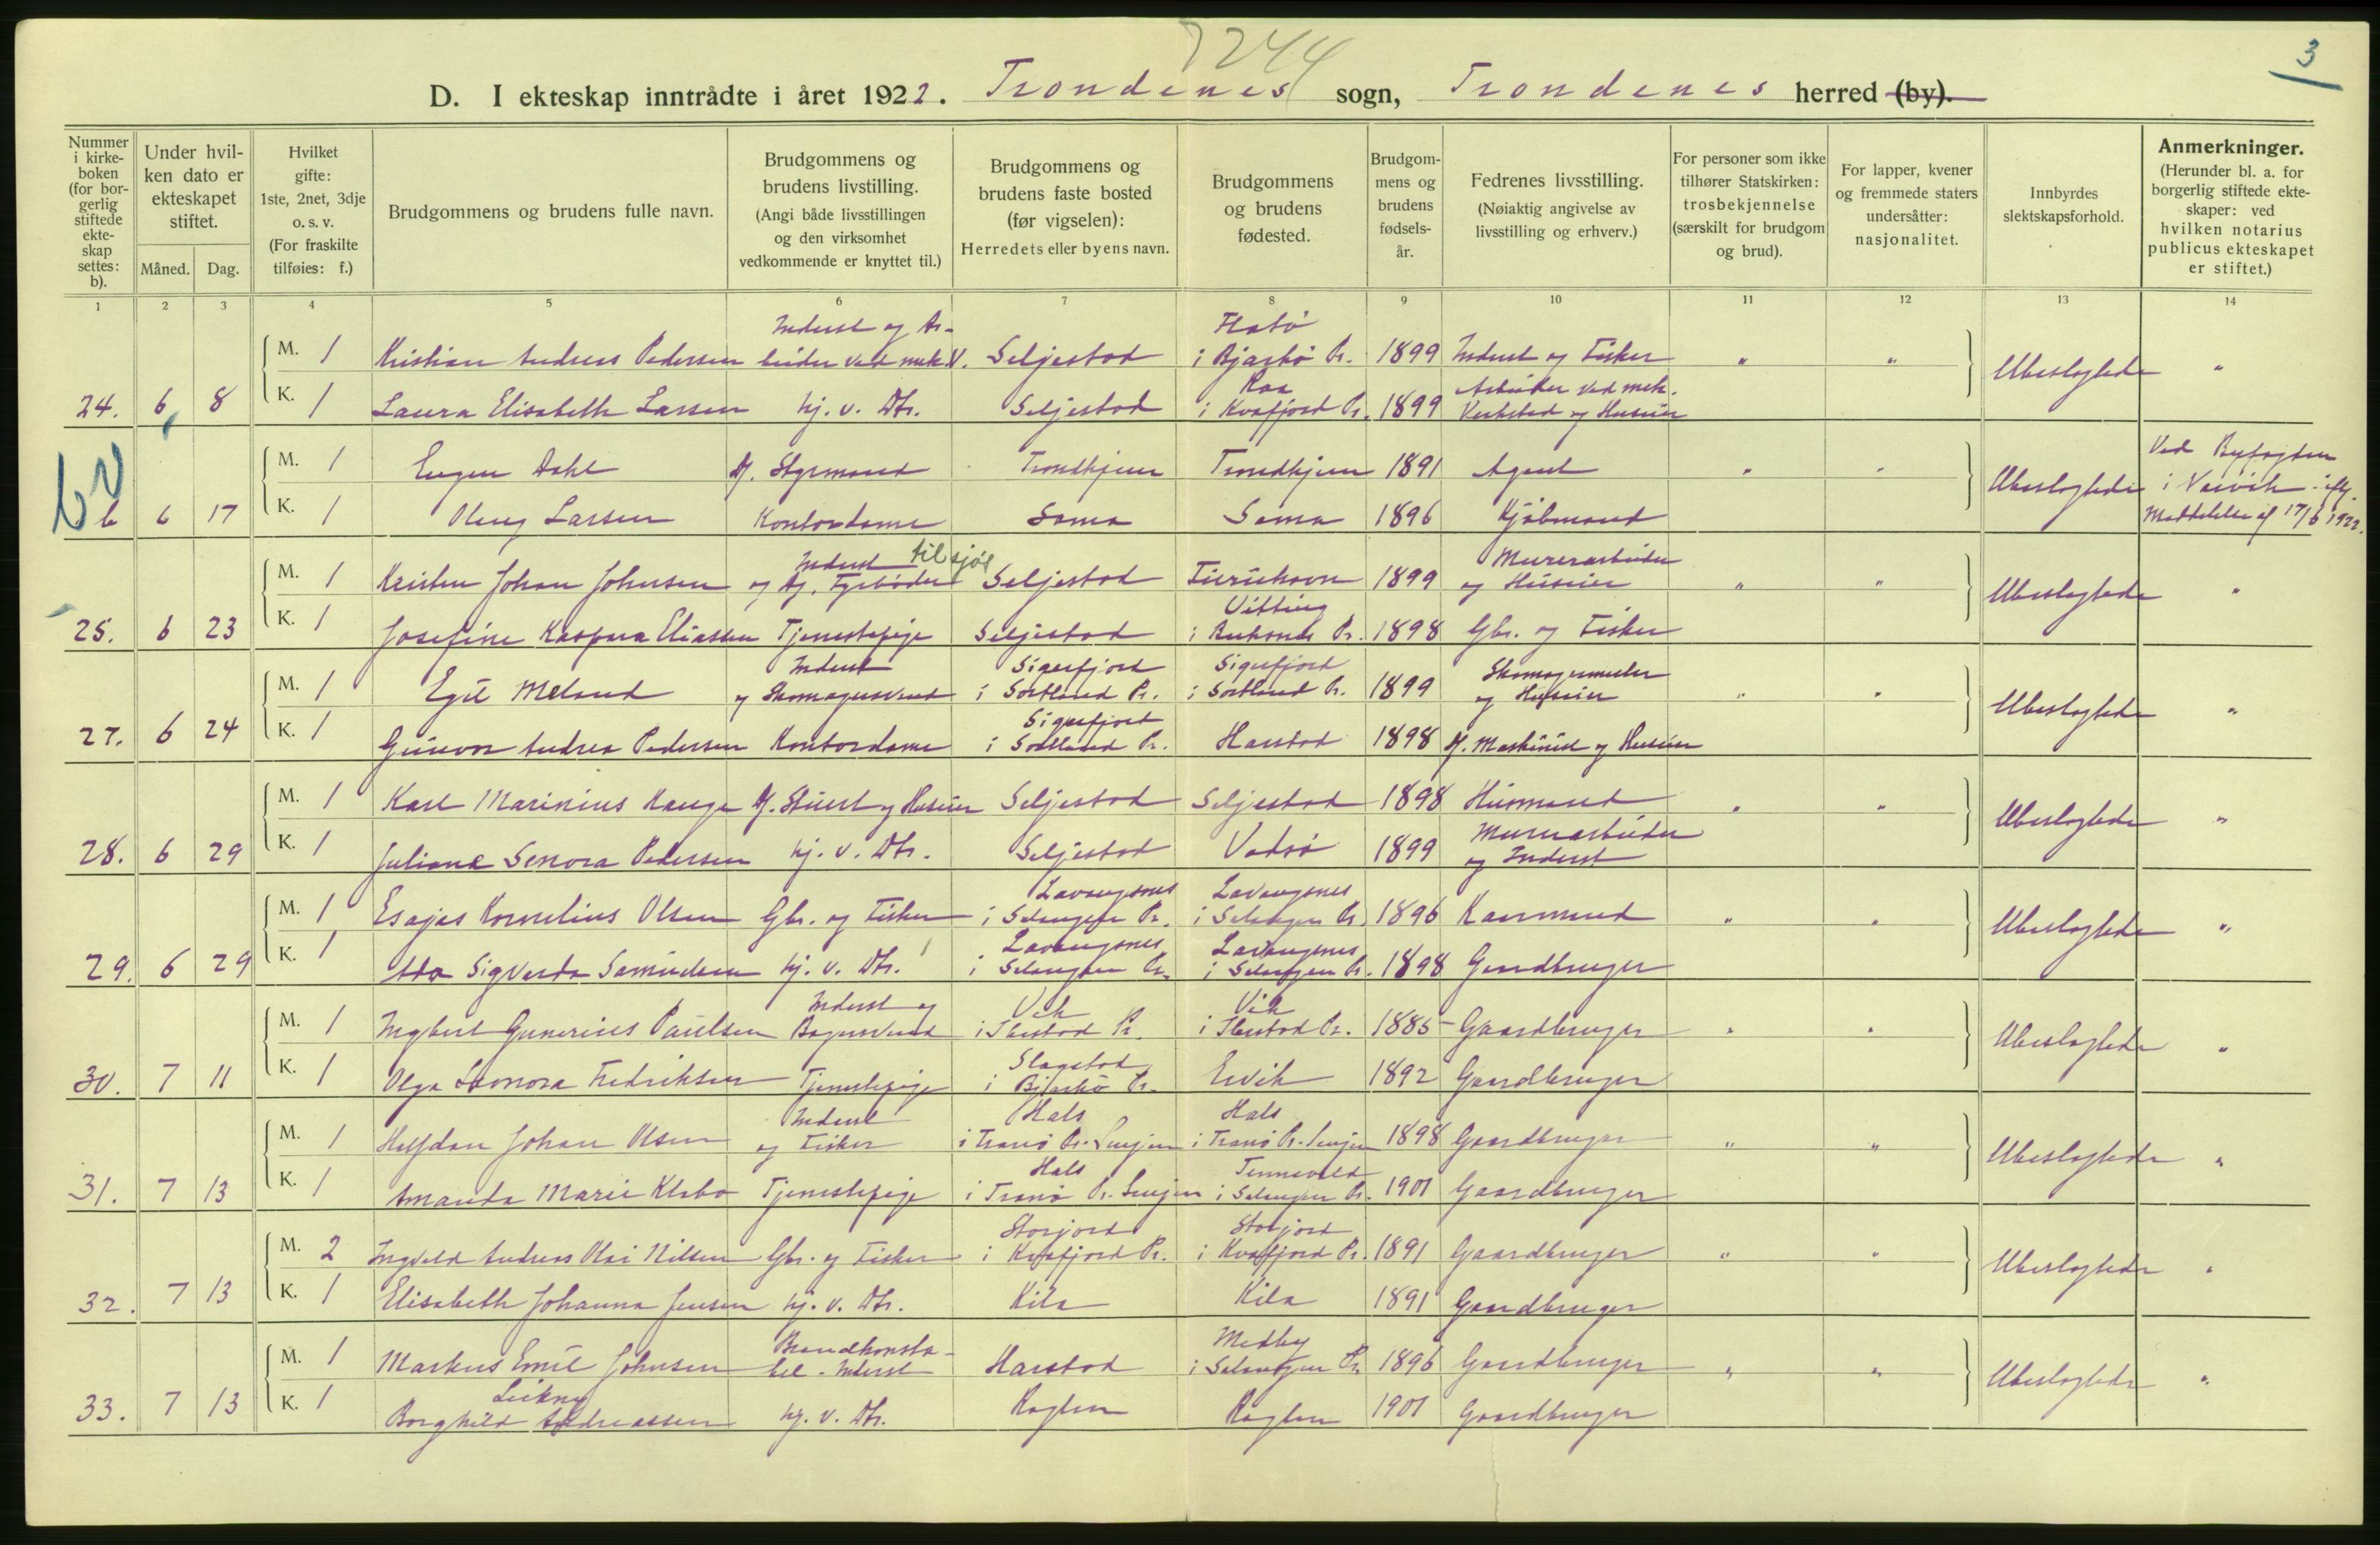 7244
3
D. I ekteskap inntrådte i året 1922. Trondenes sogn, Trondenes herred (by).
Nummer i kirke-boken (for bor-gerlig stiftede ekte-skap settes: b).
Under hvil-ken dato er ekteskapet stiftet.
Måned. Dag.
Hvilket gifte: 1ste, 2net, 3dje o. s. v. (For fraskilte tilføies: f.)
Brudgommens og brudens fulle navn.
Brudgommens og brudens livstilling. (Angi både livsstillingen og den virksomhet vedkommende er knyttet til.)
Brudgommens og brudens faste bosted (før vigselen): Herredets eller byens navn.
Brudgommens og brudens fødested.
Brudgom-mens og brudens fødsels-år.
Fedrenes livsstilling. (Nøiaktig angivelse av livsstilling og erhverv.)
For personer som ikke tilhører Statskirken: trosbekjennelse (særskilt for brudgom og brud).
For lapper, kvener og fremmede staters undersåtter: nasjonalitet.
Innbyrdes slektskapsforhold.
Anmerkninger. (Herunder bl. a. for borgerlig stiftede ekte-skaper: ved hvilken notarius publicus ekteskapet er stiftet.)
1 2 3 4 5 6 7 8 9 10 11 12 13 14
Inderst og Ar- Flatö
M. 1 Kristian Andreas Pedersen beider ved mek. V. Seljestad i Bjarkö Pr. 1899 Inderst og Fisker " " Ubeslegtede "
Raa Arbeider ved mek.
24. 6 8 K. 1 Laura Elisabeth Larsen hj. v. Dtr. Seljestad i Kvæfjord Pr. 1899 Verksted og Huseier
M. 1 Eugen Dahl Styrmand Trondhjem Trondhjem 1891 Agent " " Ubeslegtede Ved Byfogden
i Narvik ifly.
b 6 17 K. 1 Oleny Larsen Kontordame Sama Sama 1896 Kjöbmand Meddelelse af 17/6 1922.
Inderst til sjøs Murerarbeider
M. 1 Kristen Johan Johnsen og Fyrböder Seljestad 1899 og Huseier " " Ubeslegtede "
25. 6 23 K. 1 Josefine Kaspara Eliassen Tjenestepige Seljestad i Buksnes Pr. 1898 Gbr. og Fisker
Inderst Sigerfjord Sigerfjord Skomagermester
M. 1 Egil Meland og Skomagersvend i Sortland Pr. i Sortland Pr. 1899 og Huseier " " Ubeslegtede "
Sigerfjord
27. 6 24 K. 1 Gunvor Andrea Pedersen Kontordame i Sortland Pr. Harstad 1898 Maskinist og Huseier
M. 1 Karl Marinius Hauge Stuert og Huseier Seljestad Seljestad 1898 Husmand " " Ubeslegtede "
Murerarbeider
28. 6 29 K. 1 Juliane Senora Pedersen hj. v. Dtr. Seljestad Vadsö 1899 og Inderst
Lavangsnes Lavangsnes
M. 1 Esajas Kornelius Olsen Gbr. og Fisker i Salangen Pr. i Salangen Pr. 1896 Kaarmand " " Ubeslegtede "
Lavangsnes Lavangsnes
29. 6 29 K. 1 Ada Sigvarda Samuelsen hj. v. Dtr. i Salangen Pr. i Salangen Pr. 1898 Gaardbruger
Inderst og Vik Vik
M. 1 Ingbert Gunerius Paulsen Bagersvend i Ibestad Pr. i Ibestad Pr. 1885 Gaardbruger " " Ubeslegtede "
Slagstad
30. 7 11 K. 1 Olga Leonora Fredriksen Tjenestepige i Bjarkö Pr. Ervik 1892 Gaardbruger
Inderst Hals Hals
M. 1 Halfdan Johan Olsen og Fisker i Tranö Pr. Senjen i Tranö Pr. Senjen 1898 Gaardbruger " " Ubeslegtede "
Hals Tennevold
31. 7 13 K. 1 Amanda Marie Klabo Tjenestepige i Tranö Pr. Senjen i Salangen Pr. 1901 Gaardbruger
Storjord Storjord
M. 2 Ingvald Andreas Olai Nilsen Gbr. og Fisker i Kvæfjord Pr. i Kvæfjord Pr. 1891 Gaardbruger " " Ubeslegtede "
32. 7 13 K. 1 Elisabeth Johanna Jensen hj. v. Dtr. Kila Kila 1891 Gaardbruger
Brandkonsta- Medby
M. 1 Markus Emil Johnsen bel. Inderst Harstad i Salangen Pr. 1896 Gaardbruger " " Ubeslegtede "
Leikny
33. 7 13 K. 1 Borghild Andreassen hj. v. Dtr. Røglen Røglen 1901 Gaardbruger